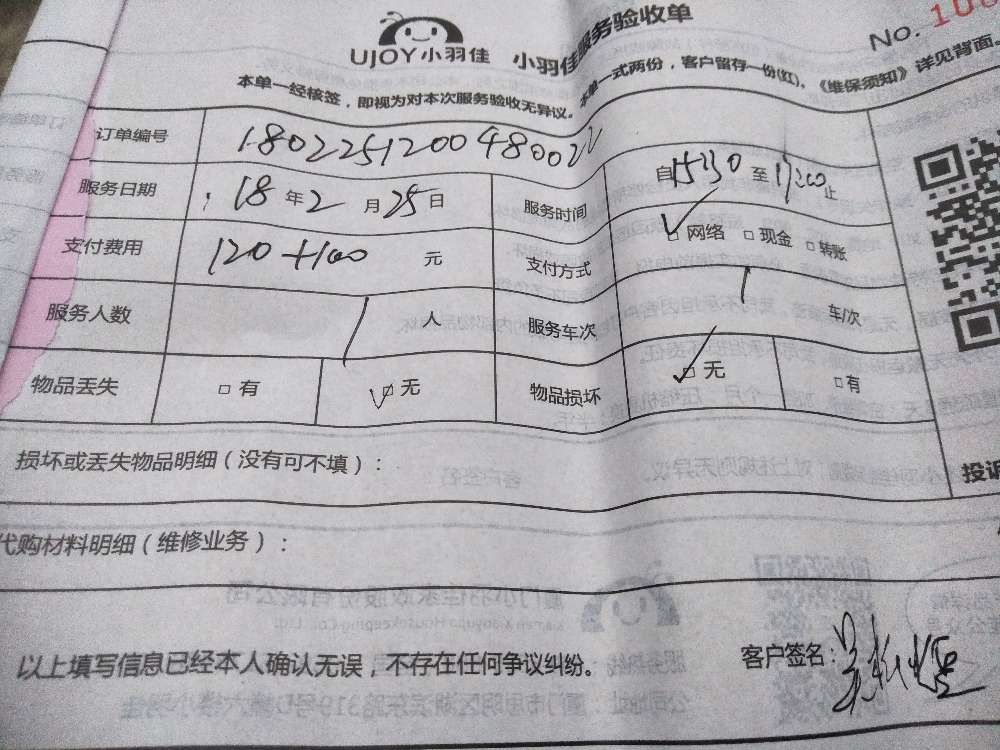 UJOY小羽佳 小羽佳服务验收单
No. 10
本单一经核签，即视为对本次服务验收无异议。本单一式两份，客户留存一份(红)，《维保须知》详见背面。
订单编号 180225120048002
服务日期 18年2月25日 服务时间 自15:30至17:00止
支付费用 120+100 元 支付方式 □网络 □现金 □转账
服务人数 1 人 服务车次 1 车/次
物品丢失 □有 □无 物品损坏 □无 □有
损坏或丢失物品明细（没有可不填）：
投诉
代购材料明细（维修业务）：
以上填写信息已经本人确认无误，不存在任何争议纠纷。 客户签名：